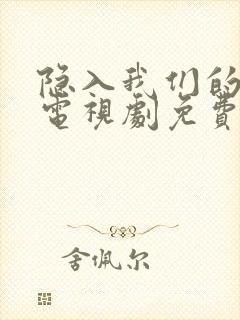 隐入我们的
電視劇免費
舍佩尔